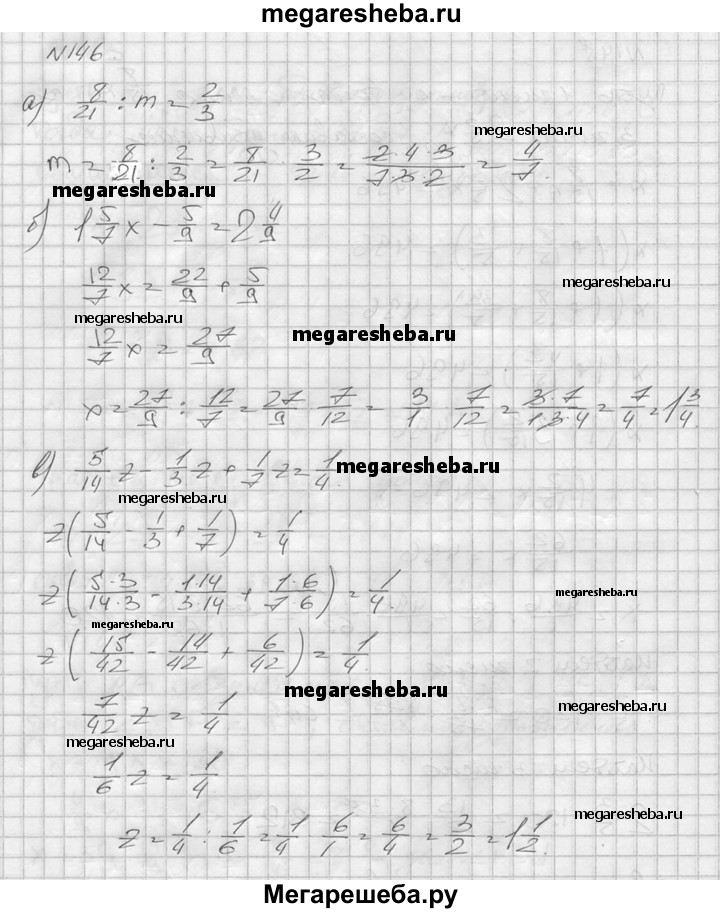 megaresheba.ru
N146
а) 8/21 : m = 2/3
megaresheba.ru
m = 8/21 : 2/3 = 8/21 · 3/2 = 2·4·3/7·3·2 = 4/7.
megaresheba.ru
б) 1 5/7 x - 5/9 = 2 4/9
12/7 x = 22/9 + 5/9
megaresheba.ru
megaresheba.ru
megaresheba.ru
12/7 x = 27/9
x = 27/9 : 12/7 = 27/9 · 7/12 = 3/1 · 7/12 = 3·7/1·3·4 = 7/4 = 1 3/4.
в) 5/14 z - 1/3 z + 1/7 z = 1/4.
megaresheba.ru
megaresheba.ru
z(5/14 - 1/3 + 1/7) = 1/4
z(5·3/14·3 - 1·14/3·14 + 1·6/7·6) = 1/4.
megaresheba.ru
megaresheba.ru
z(15/42 - 14/42 + 6/42) = 1/4.
megaresheba.ru
7/42 z = 1/4
megaresheba.ru
megaresheba.ru
1/6 z = 1/4
z = 1/4 : 1/6 = 1/4 · 6/1 = 6/4 = 3/2 = 1 1/2.
Мегарешеба.ру